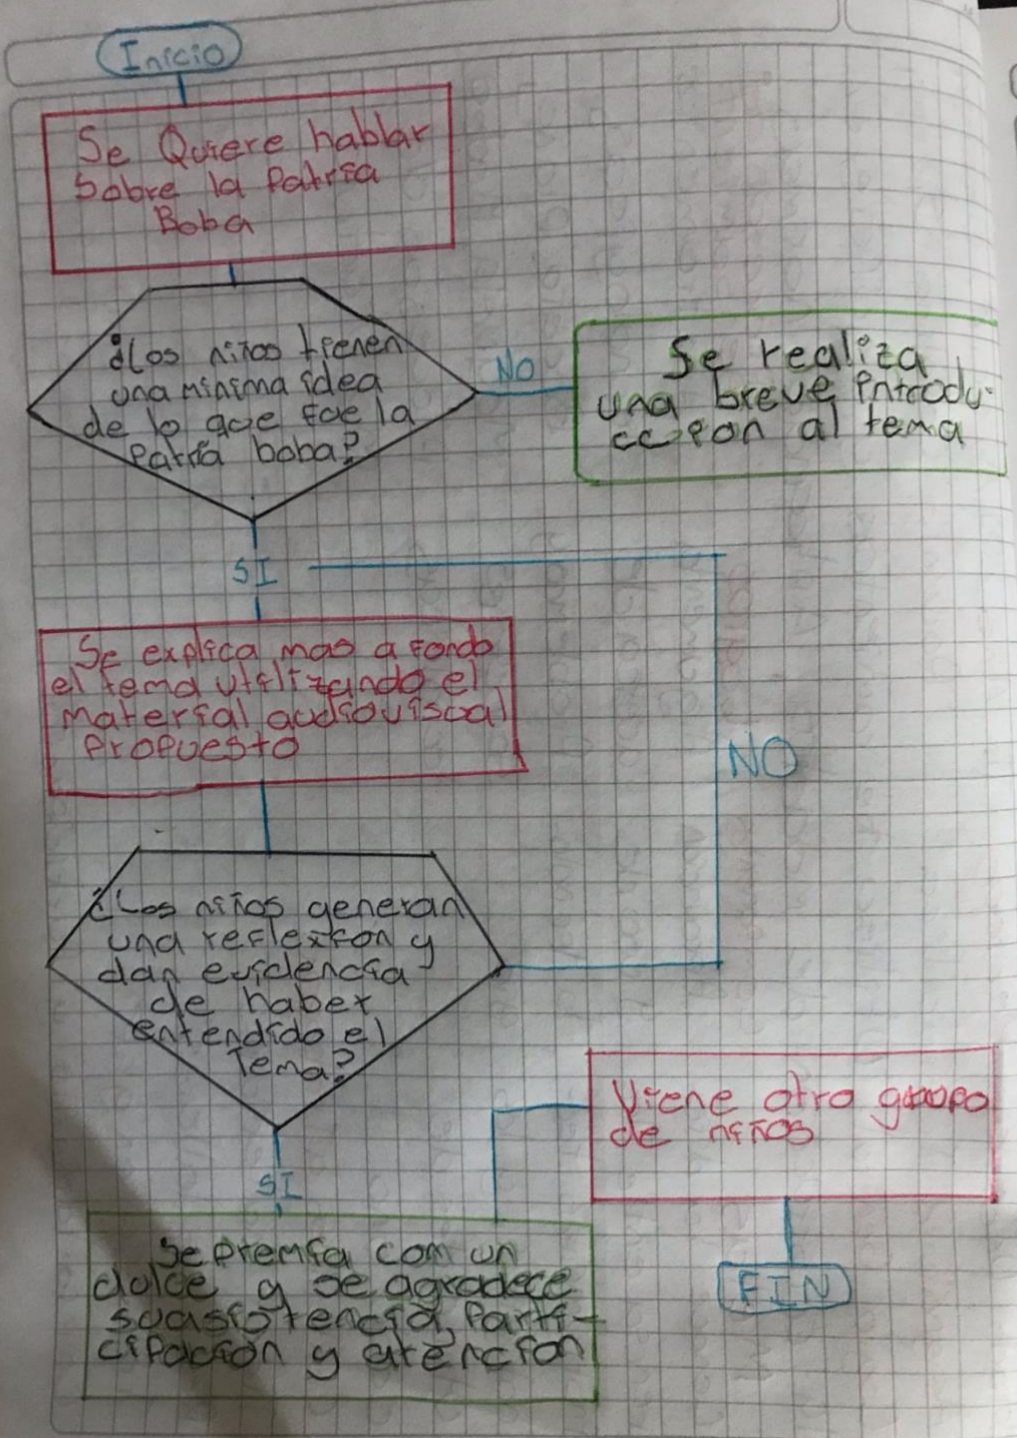 Inicio
Se Quiere hablar
Sobre la Patria
Boba
¿Los niños tienen
una minima idea
de lo que fue la
Patria boba?
NO
Se realiza
una breve introdu-
ccion al tema
SI
Se explica mas a fondo
el tema utilizando el
material audiovisual
Propuesto
NO
¿Los niños generan
una reflexion y
dan evidencia
de haber
entendido el
Tema?
SI
Viene otro grupo
de niños
Se premia com un
dulce y se agradece
suasistencia, Parti-
cipacion y atencion
FIN